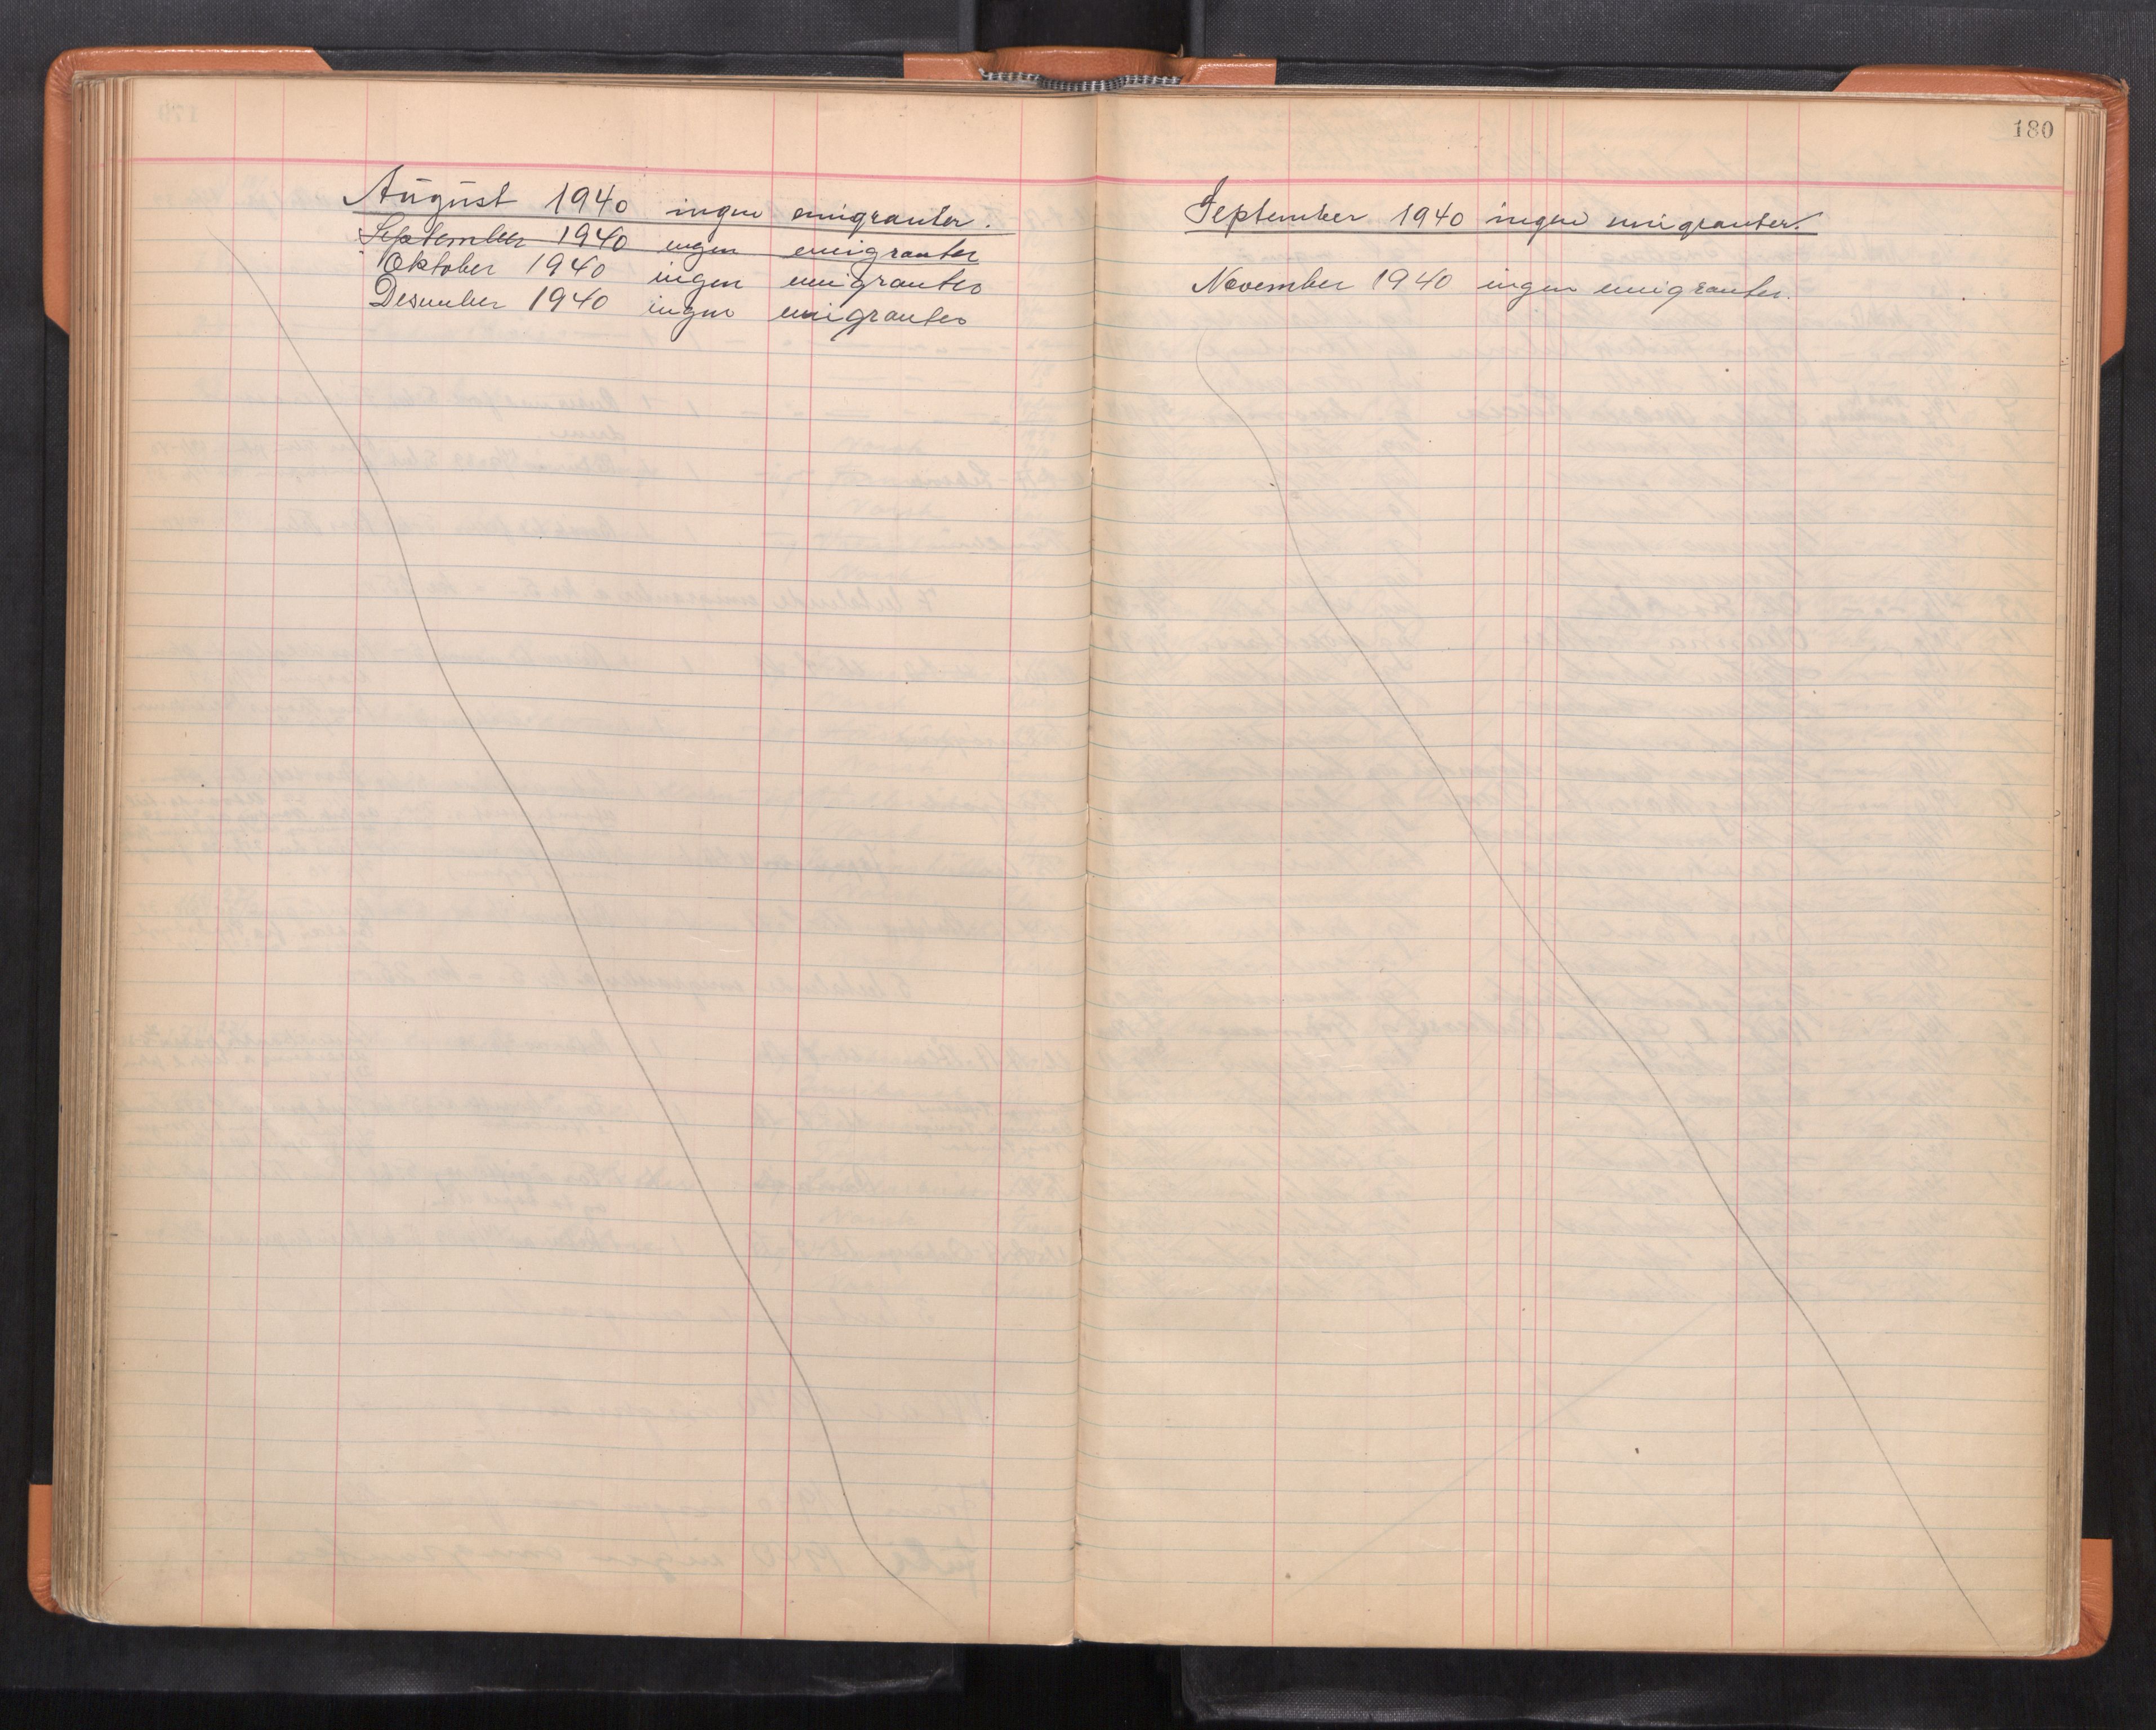 August 1940 ingen emigranter.
September 1940 ingen emigranter
Oktober 1940 ingen emigranter
Desember 1940 ingen emigranter
180
September 1940 ingen emigranter.
November 1940 ingen emigranter.